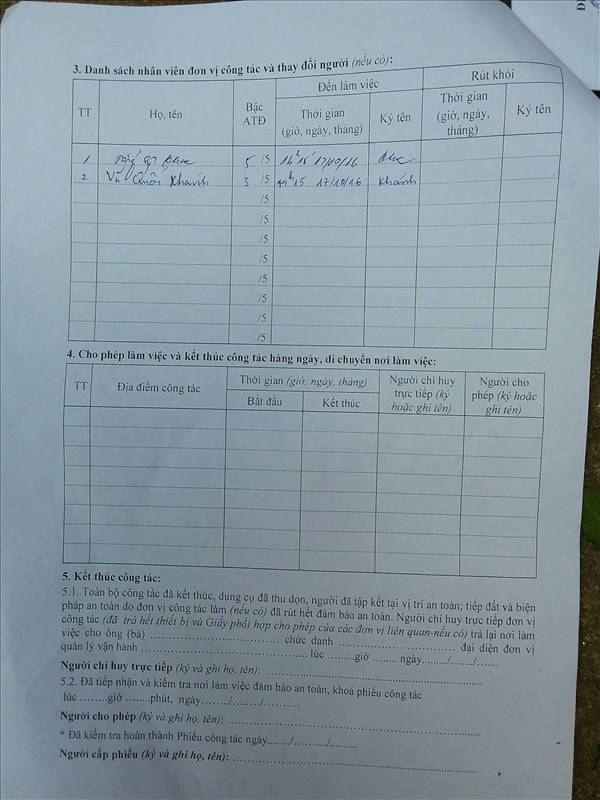 3. Danh sách nhân viên đơn vị công tác và thay đổi người (nếu có):
TT Họ, tên Bậc ATĐ Đến làm việc Rút khỏi
Thời gian (giờ, ngày, tháng) Ký tên Thời gian (giờ, ngày, tháng) Ký tên
1 5 /5 14h15' 17/10/16
2 Vũ Quốc Khánh 3 /5 14h15 17/10/16 Khánh
/5
/5
/5
/5
/5
/5
/5
/5
4. Cho phép làm việc và kết thúc công tác hàng ngày, di chuyển nơi làm việc:
TT Địa điểm công tác Thời gian (giờ, ngày, tháng) Người chỉ huy trực tiếp (ký hoặc ghi tên) Người cho phép (ký hoặc ghi tên)
Bắt đầu Kết thúc
5. Kết thúc công tác:
5.1. Toàn bộ công tác đã kết thúc, dụng cụ đã thu dọn, người đã tập kết tại vị trí an toàn; tiếp đất và biện
pháp an toàn do đơn vị công tác làm (nếu có) đã rút hết đảm bảo an toàn. Người chỉ huy trực tiếp đơn vị
công tác (đã trả hết thiết bị và Giấy phối hợp cho phép của các đơn vị liên quan-nếu có) trả lại nơi làm
việc cho ông (bà) .......................... chức danh .......................... đại diện đơn vị
quản lý vận hành .................................. lúc .........giờ ........ ngày......../......../.......
Người chỉ huy trực tiếp (ký và ghi họ, tên): ..................................................
5.2. Đã tiếp nhận và kiểm tra nơi làm việc đảm bảo an toàn, khoá phiếu công tác
lúc ........giờ .......phút, ngày......./......../..........
Người cho phép (ký và ghi họ, tên): ..................................................
* Đã kiểm tra hoàn thành Phiếu công tác ngày......./........./.........
Người cấp phiếu (ký và ghi họ, tên): ..................................................